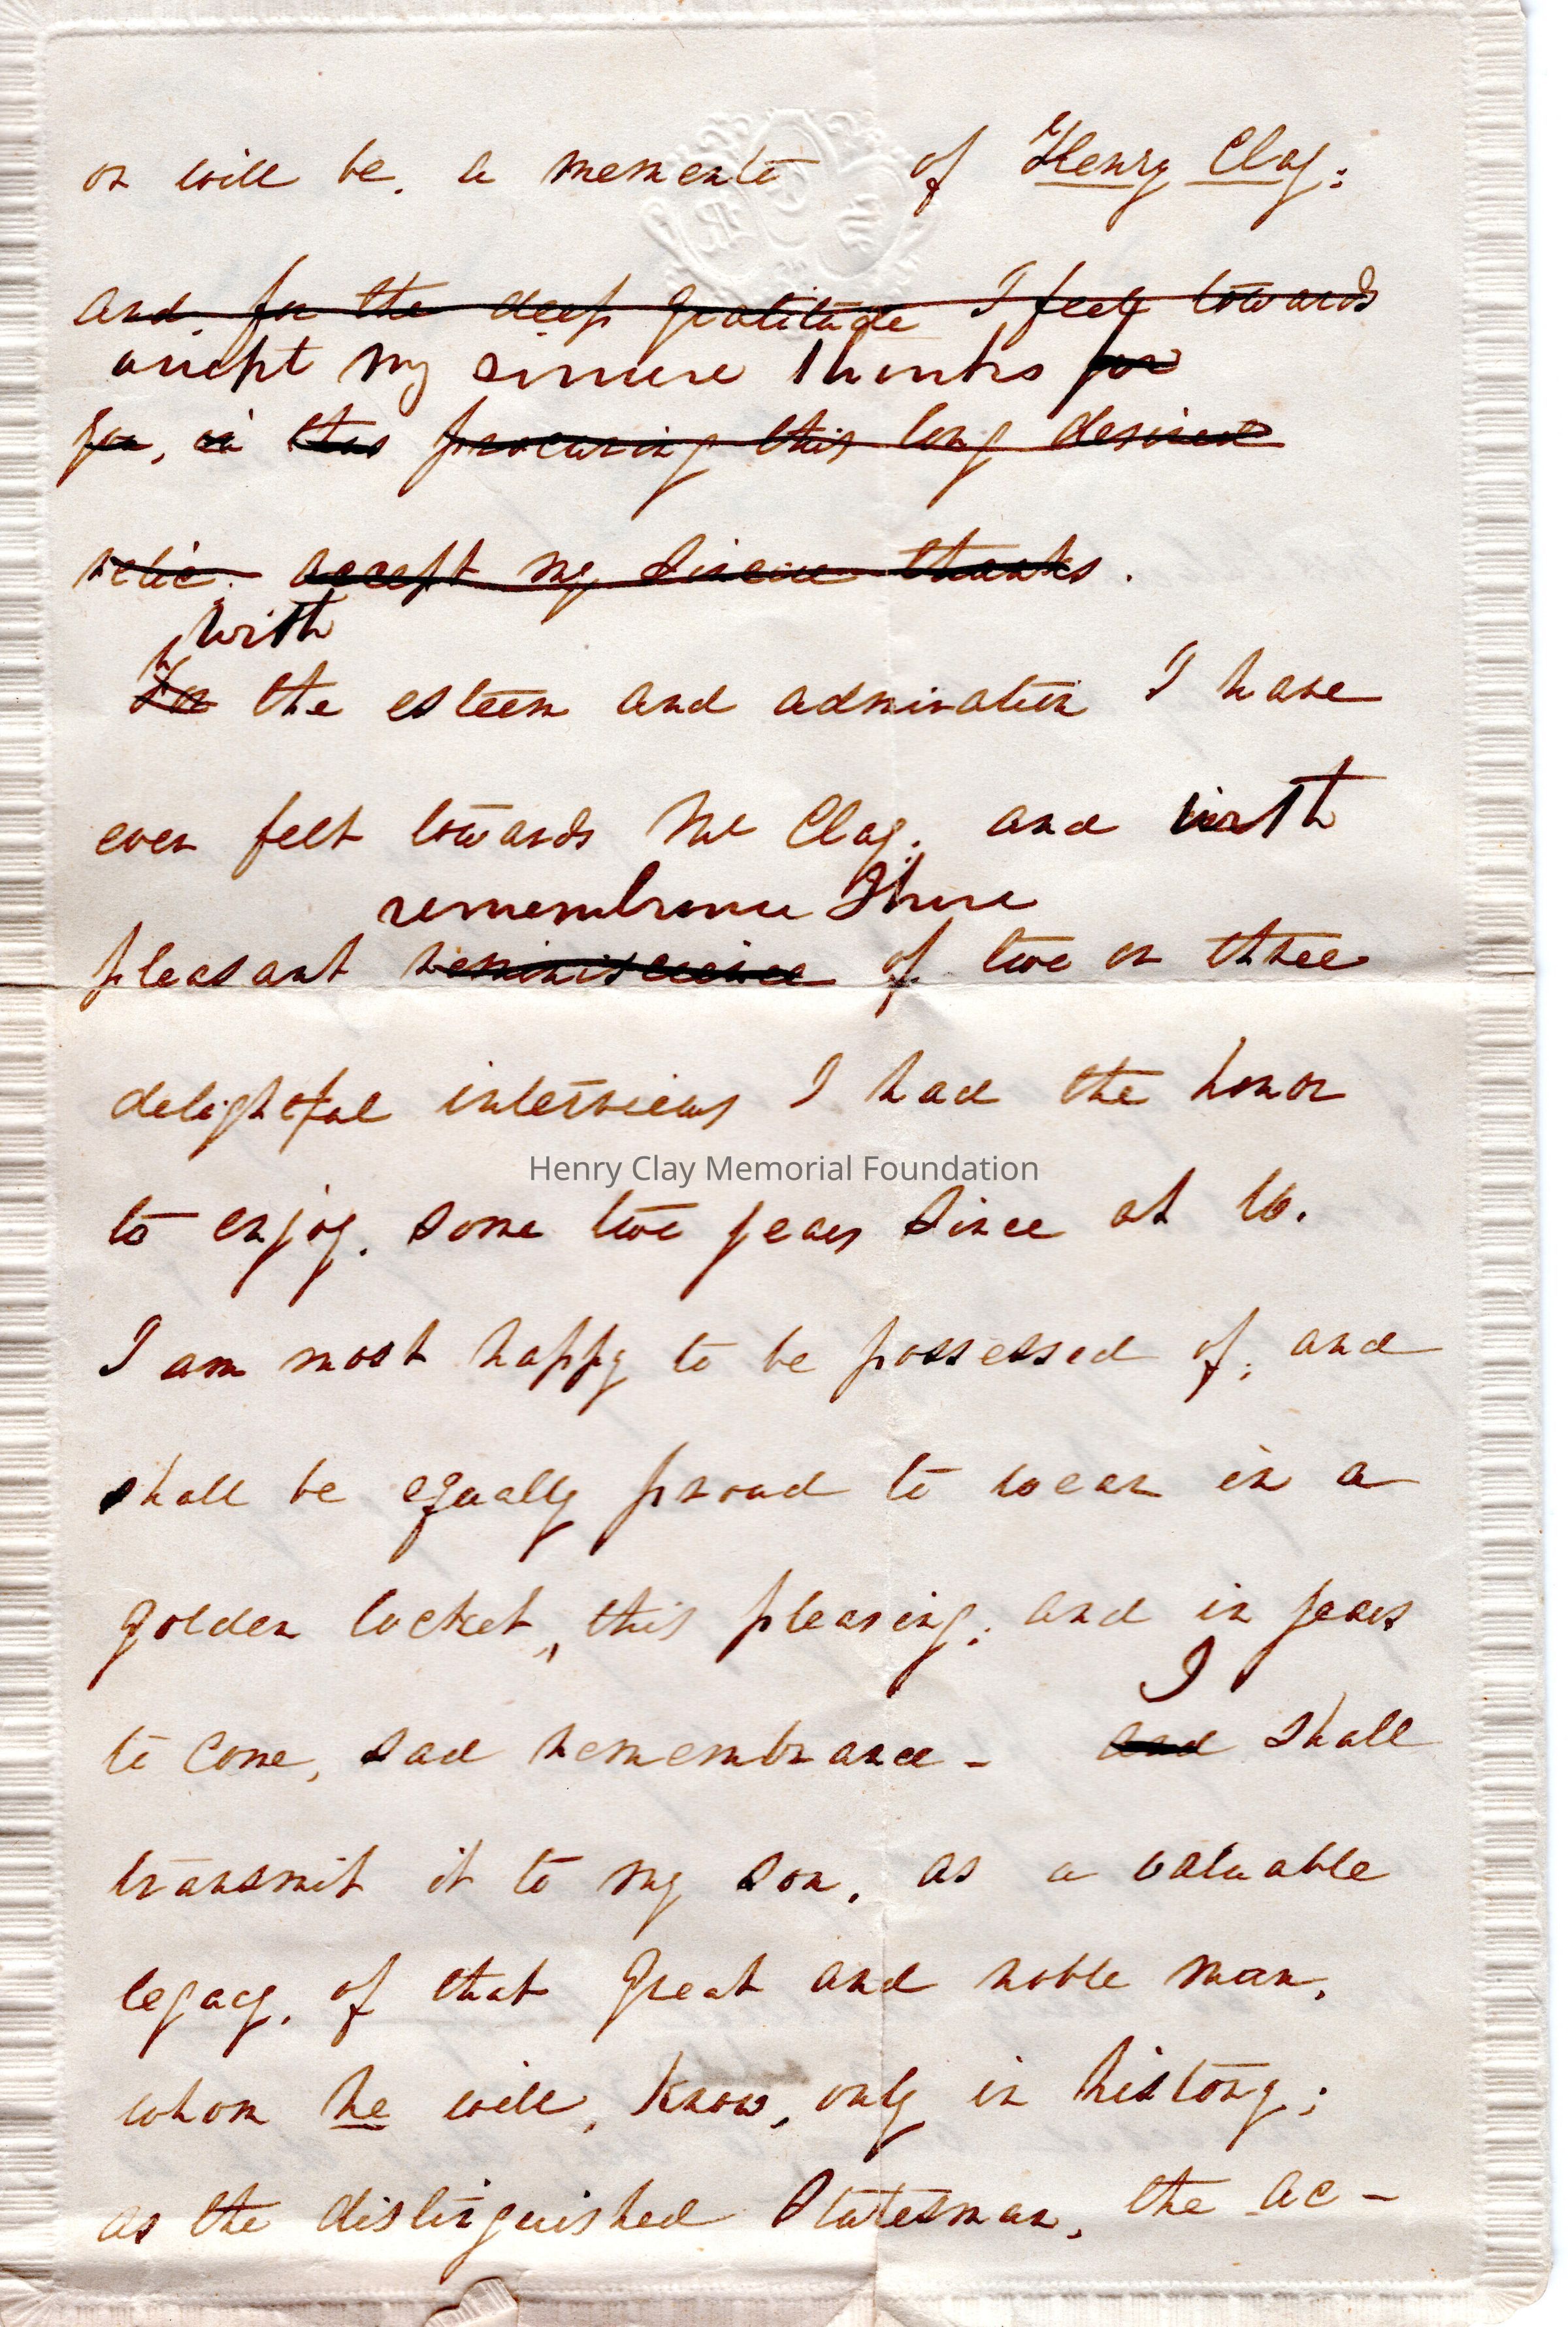 or will be. a memento of Henry Clay:
and. for the deep gratitude I feel towards
accept my sincere thanks for
for, procuring this long desired
relic. accept my sincere thanks.
with
For the esteem and admiration I have
ever felt towards Mr Clay. and with
remembrance I have
pleasant reminiscence of two or three
delightful interviews I had the honor
Henry Clay Memorial Foundation
to enjoy. some two years since at W.
I am most happy to be possessed of, and
shall be equally proud to wear in a
golden locket, this pleasing, and in years
I
to come, sad remembrance - and shall
transmit it to my son, as a valuable
legacy, of that great and noble man,
whom he will, know, only in history;
as the distinguished Statesman, the ac-